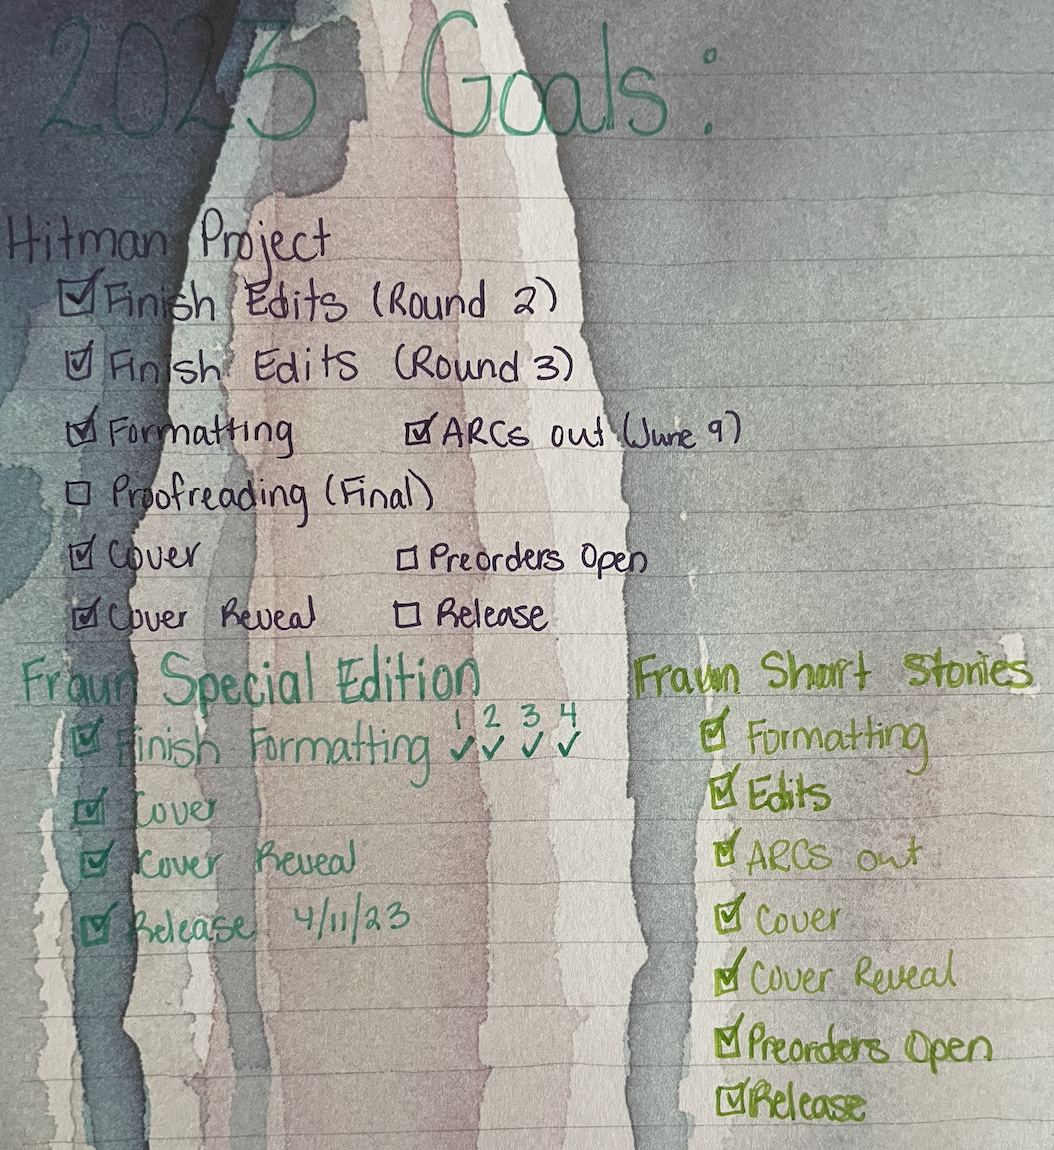 2023 Goals:
Hitman Project
☑ Finish Edits (Round 2)
☑ Finish Edits (Round 3)
☑ Formatting ☑ ARCs out (June 9)
☐ Proofreading (Final)
☑ Cover ☐ Preorders Open
☑ Cover Reveal ☐ Release
Fraun Special Edition
1 2 3 4
☑ Finish Formatting ✓ ✓ ✓ ✓
☑ Cover
☑ Cover Reveal
☑ Release 4/11/23
Fraun Short Stories
☑ Formatting
☑ Edits
☑ ARCs out
☑ Cover
☑ Cover Reveal
☑ Preorders Open
☑ Release